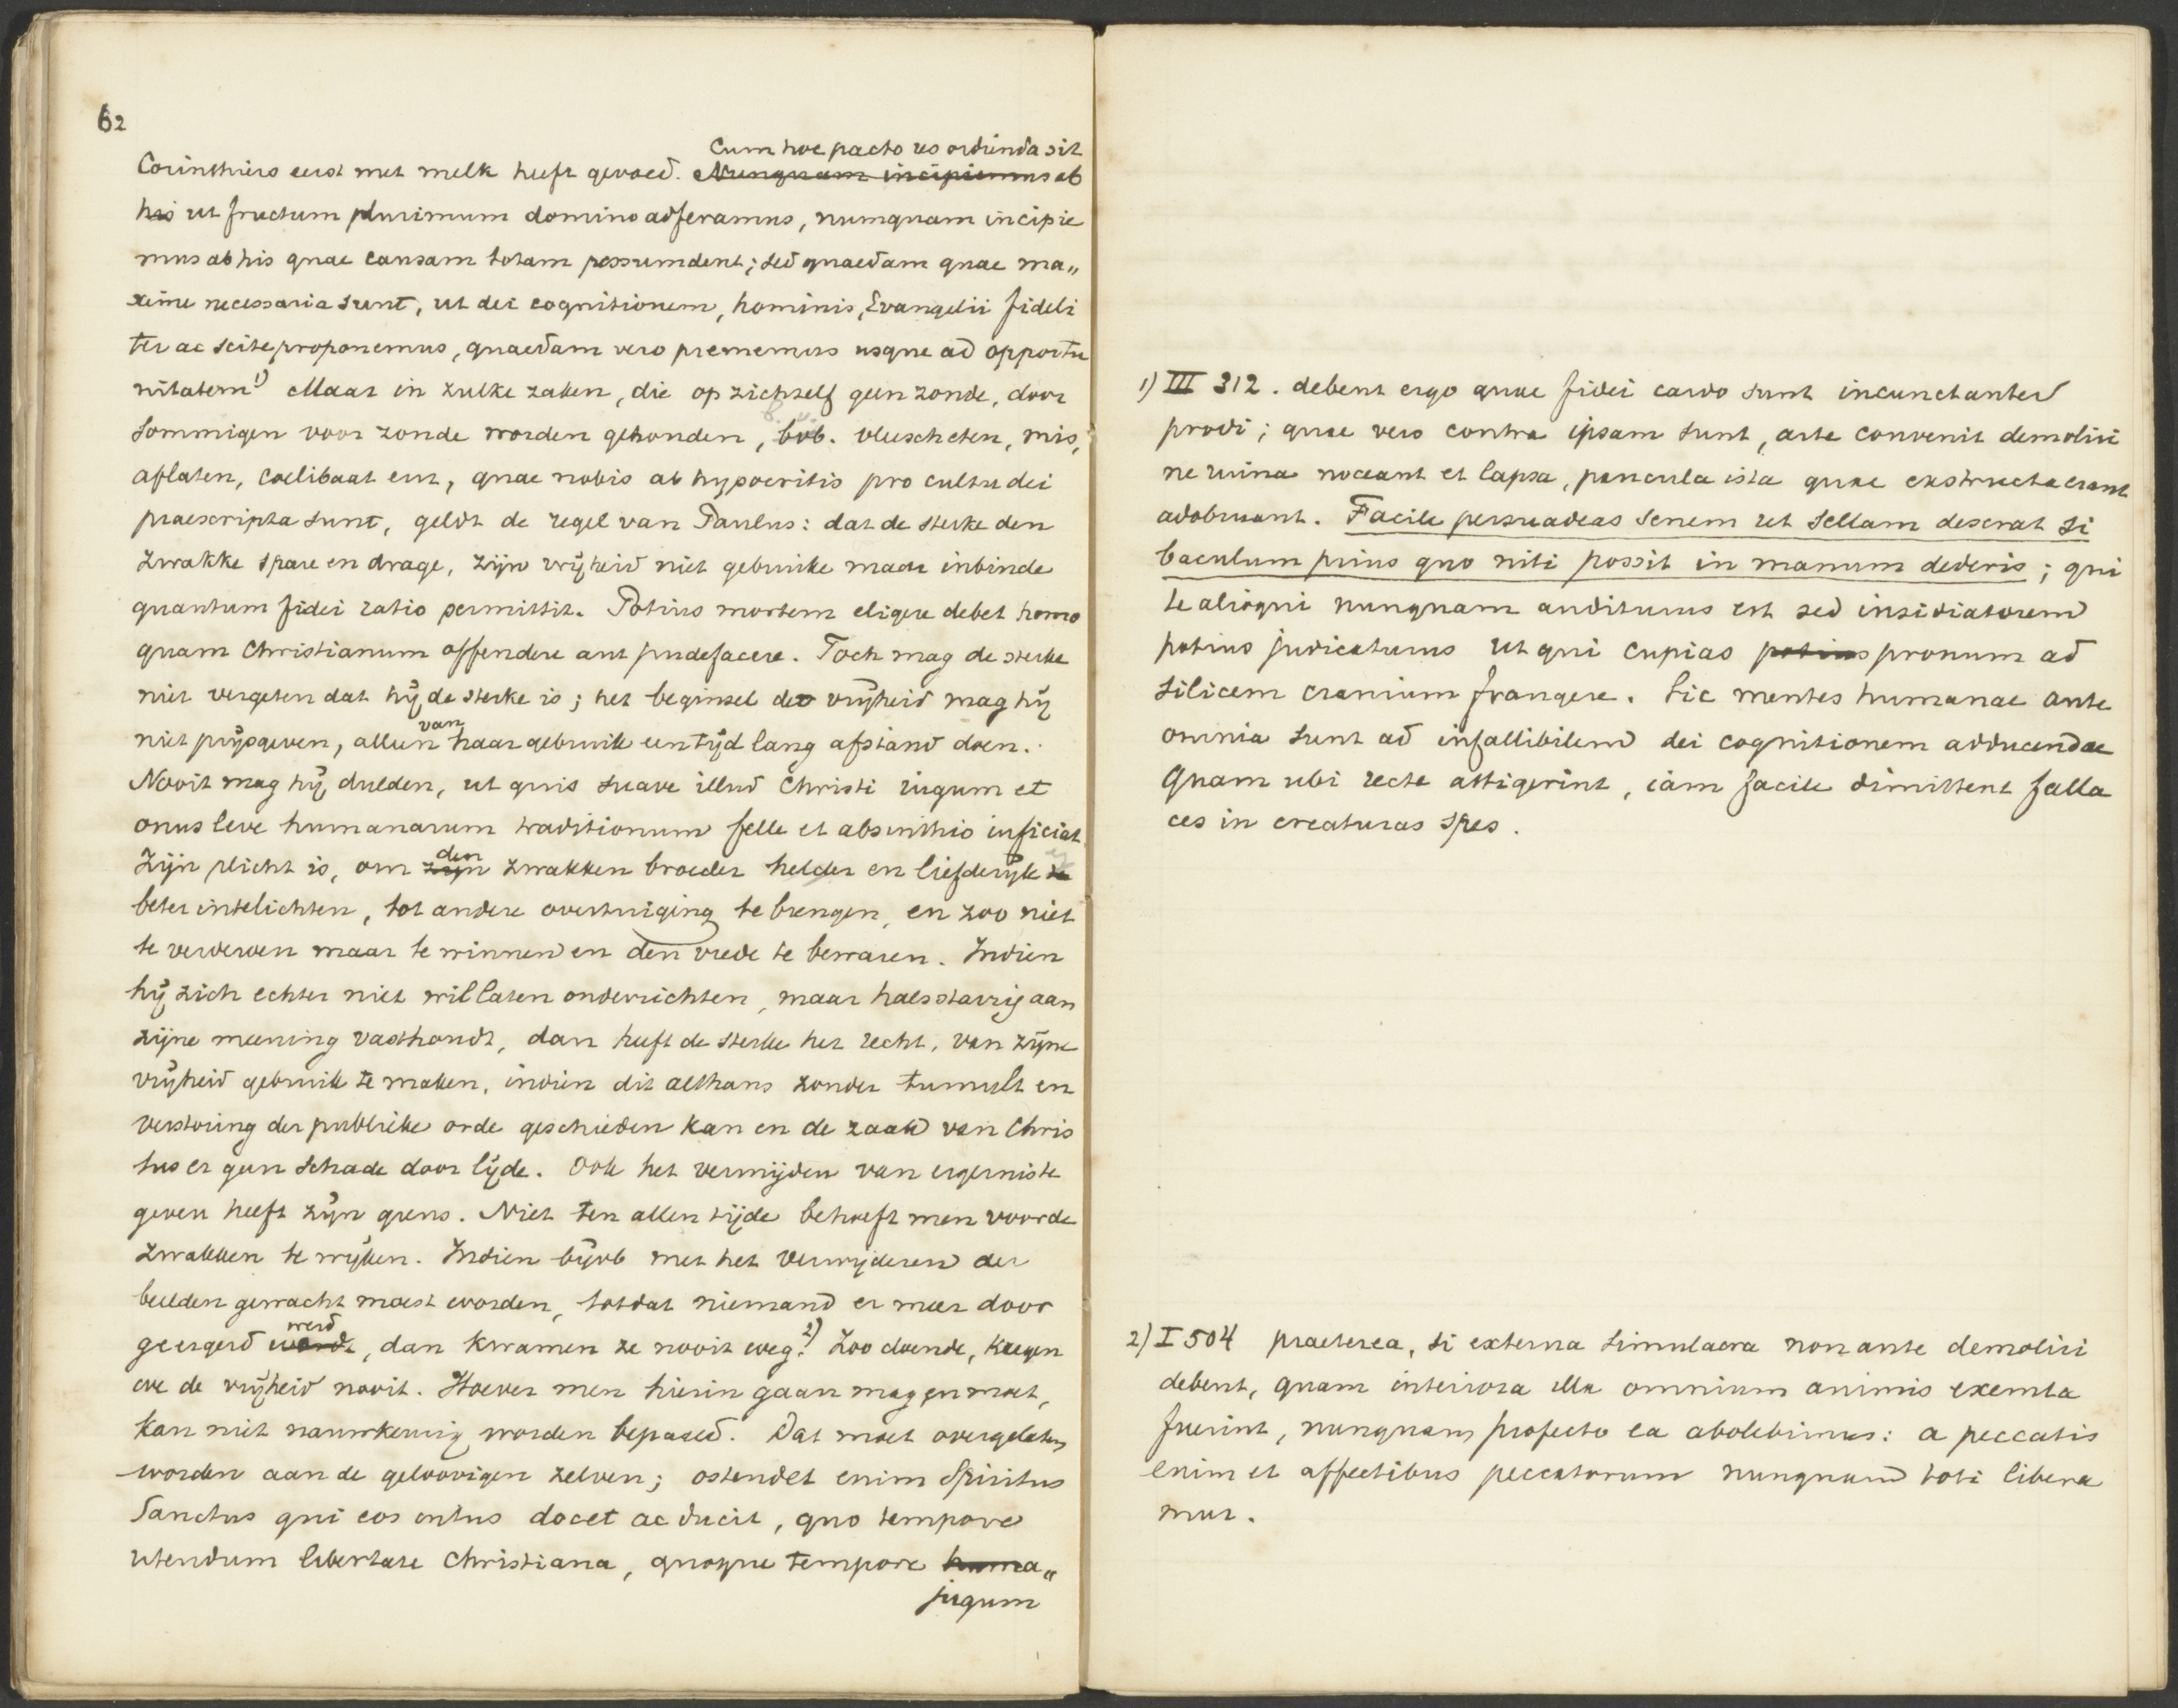 62
Cum hoc pacto res ordienda sit
Corinthiers eerst met melk heeft gevoed. Nunquam incipiemus ab
his ut fructum plurimum domino adferamus, numquam incipie
mus ab his quae causam totam pessumdent; sed quaedam quae ma„
xime necessaria sunt, ut dei cognitionem, hominis, Evangelii fideli
ter ac scite proponemus, quaedam vero prememus usque ad opportu
nitatem 1) Maar in zulke zaken, die op zichzelf geen zonde, door
sommigen voor zonde worden gehouden, bvb. vleescheten, mis,
aflaten, coelibaat enz, quae nobis ab hypocritis pro cultu dei
praescripta sunt, geldt de regel van Paulus: dat de sterke den
zwakke spare en drage, zijn vrijheid niet gebruike maar inbinde
quantum fidei ratio permittit. Potius mortem eligere debet homo
quam Christianum offendere aut pudefacere. Toch mag de sterke
niet vergeten dat hij de sterke is; het beginsel der vrijheid mag hij
niet prijsgeven, alleen van haar gebruik een tijd lang afstand doen.
Nooit mag hij dulden, ut quis suave illud Christi iugum et
onus leve humanarum traditionum felle et absinthio inficiat.
Zijn plicht is, om zijn den zwakken broeder helder en liefderijk te
beter intelichten, tot andere overtuiging te brengen, en zoo niet
te verderven maar te winnen en den vrede te bewaren. Indien
hij zich echter niet wil laten onderrichten, maar halsstarrig aan
zijne meening vasthoudt, dan heeft de sterke het recht, van zijne
vrijheid gebruik te maken, indien dit althans zonder tumult en
verstoring der publieke orde geschieden kan en de zaak van Chris
tus er geen schade door lijde. Ook het vermijden van ergernis te
geven heeft zijn grens. Niet ten allen tijde behoeft men voor de
zwakken te wijken. Indien bijvb met het verwijderen der
beelden gewacht moest worden, totdat niemand er meer door
geergerd wordt werd, dan kwamen ze nooit weg. 2) Zoo doende, kregen
we de vrijheid nooit. Hoever men hierin gaan mag en moet,
kan niet nauwkeurig worden bepaald. Dat moet overgelaten
worden aan de geloovigen zelven; ostendet enim Spiritus
Sanctus qui eos intus docet ac ducit, quo tempore
utendum libertate Christiana, quoque tempore huma„
jugum
1) III 312. debent ergo quae fidei cardo sunt incunctanter
prodi; quae vero contra ipsam sunt, arte convenit demoliri
ne ruina noceant et lapsa, paucula ista quae exstructa erant
adobruant. Facile persuadeas senem ut sellam deserat si
baculum prius quo niti possit in manum dederis; qui
te alioqui nunquam auditurus est sed insidiatorem
potius judicaturus ut qui cupias potius pronum ad
silicem cranium frangere. Sic mentes humanae ante
omnia sunt ad infallibilem dei cognitionem adducendae
Quam ubi recte attigerint, iam facile dimittent falla
ces in creaturas spes.
2) I 504 praeterea, si externa simulacra non ante demoliri
debent, quam interiora illa omnium animis exemta
fuerint, nunquam profecto ea abolebimus: a peccatis
enim et affectibus peccatorum nunquam toti libera
mur.